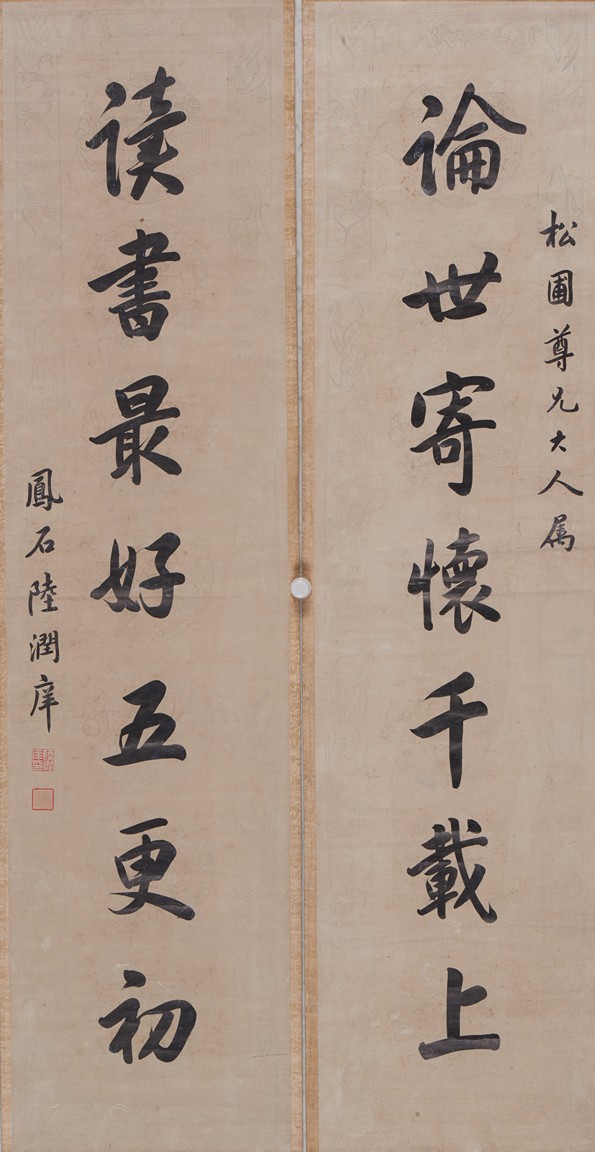 松圃尊兄大人属
論世寄懷千載上
读書最好五更初
鳳石陸潤庠